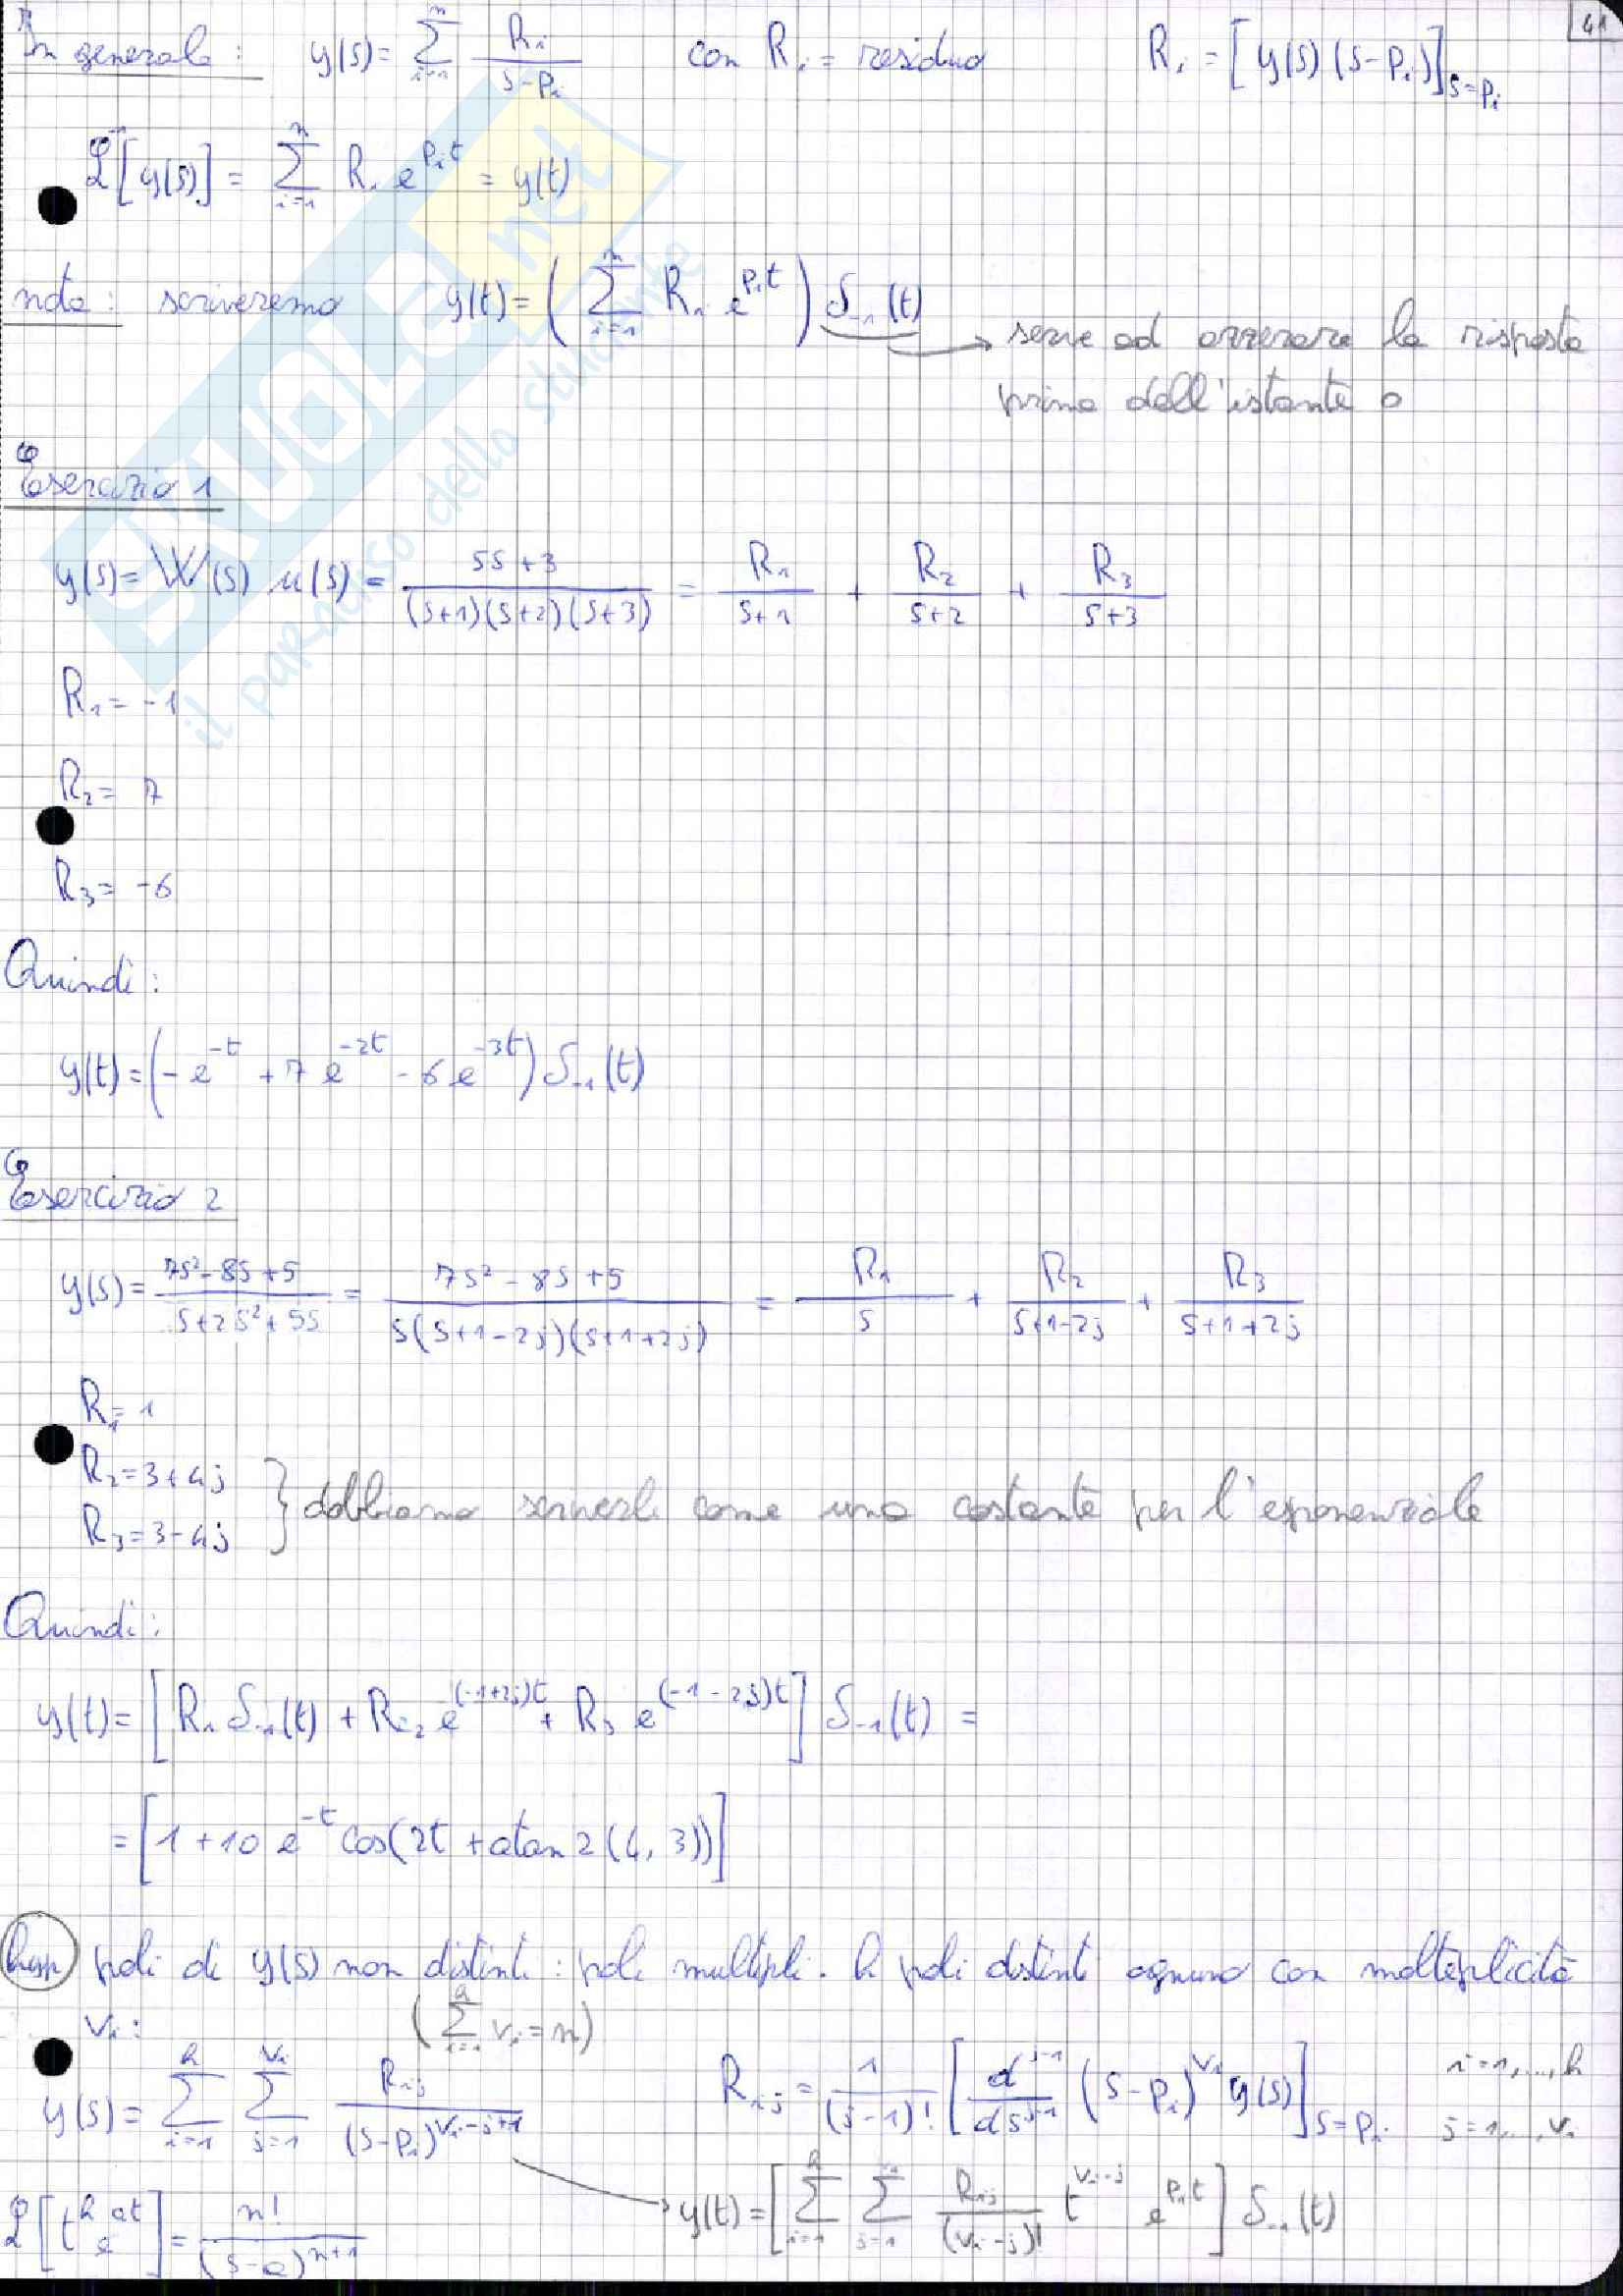 41
In generale: y(s) = Σ_{i=1}^{n} R_i/(s-p_i) con R_i = residuo R_i = [y(s)(s-p_i)]_{s=p_i}
ℒ⁻[y(s)] = Σ_{i=1}^{n} R_i e^{p_i t} = y(t)
nota: scriveremo y(t) = (Σ_{i=1}^{n} R_i e^{p_i t}) δ_{-1}(t)
→ serve ad azzerare la risposta
prima dell'istante 0
Esercizio 1
y(s) = W(s) u(s) = (5s+3)/((s+1)(s+2)(s+3)) = R_1/(s+1) + R_2/(s+2) + R_3/(s+3)
R_1 = -1
R_2 = 7
R_3 = -6
Quindi:
y(t) = (-e^{-t} + 7e^{-2t} - 6e^{-3t}) δ_{-1}(t)
Esercizio 2
y(s) = (7s²-8s+5)/(s+2s²+5s) = (7s²-8s+5)/(s(s+1-2j)(s+1+2j)) = R_1/s + R_2/(s+1-2j) + R_3/(s+1+2j)
R_1 = 1
R_2 = 3+4j
R_3 = 3-4j
} dobbiamo scriverli come una costante per l'esponenziale
Quindi:
y(t) = [R_1 δ_{-1}(t) + R_2 e^{(-1+2j)t} + R_3 e^{(-1-2j)t}] δ_{-1}(t) =
= [1 + 10 e^{-t} cos(2t + atan2(4, 3))]
poli di y(s) non distinti: poli multipli. h poli distinti ognuno con molteplicità
v_i: (Σ_{i=1}^{h} v_i = n)
y(s) = Σ_{i=1}^{h} Σ_{j=1}^{v_i} R_{ij}/(s-p_i)^{v_i-j+1} R_{ij} = 1/(j-1)! [d^{j-1}/ds^{j-1} (s-p_i)^{v_i} y(s)]_{s=p_i} i=1,...,h j=1,...,v_i
ℒ[t^h e^{at}] = n!/(s-a)^{n+1} → y(t) = [Σ_{i=1}^{h} Σ_{j=1}^{v_i} R_{ij}/(v_i-j)! t^{v_i-j} e^{p_i t}] δ_{-1}(t)
SKUOLA.net
il paradiso dello studente